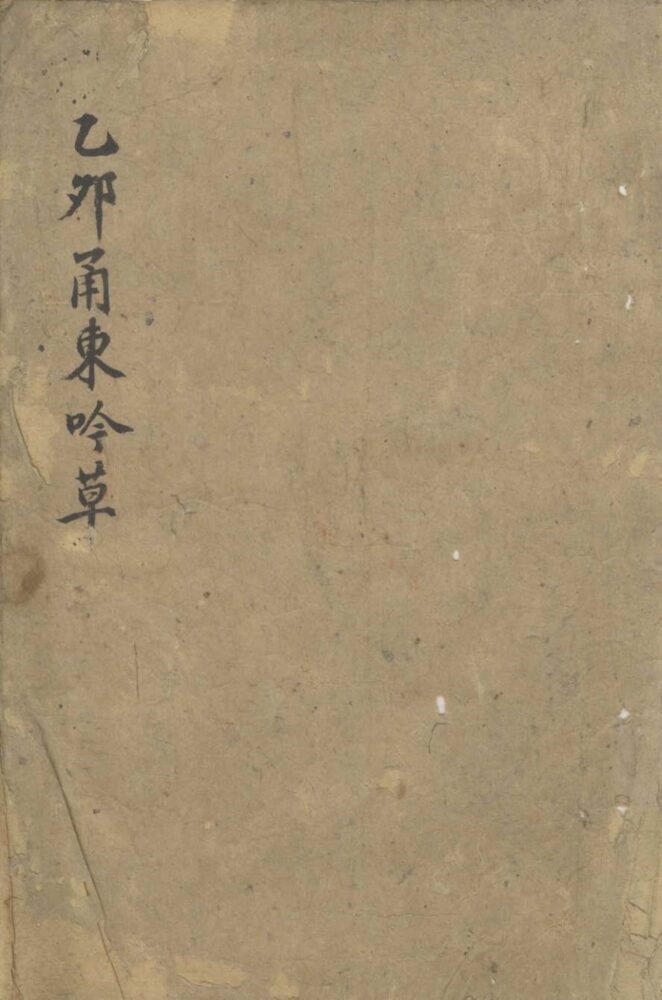 乙夘甬東吟草